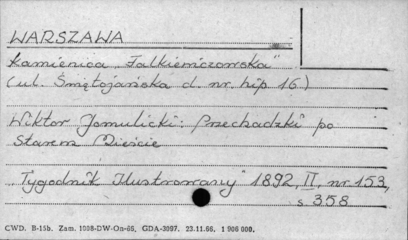 WARSZAWA
Kamienica „Falkiewiczowska"
(ul. Świętojańska d. nr. hip 16)
Wiktor Gomulicki: Przechadzki po
Starem Mieście
„Tygodnik Ilustrowany" 1892, II, nr. 153,
s 358
CWD. B-15b. Zam. 1098-DW-On-66. GDA-3097. 23.11.66. 1 900 000.